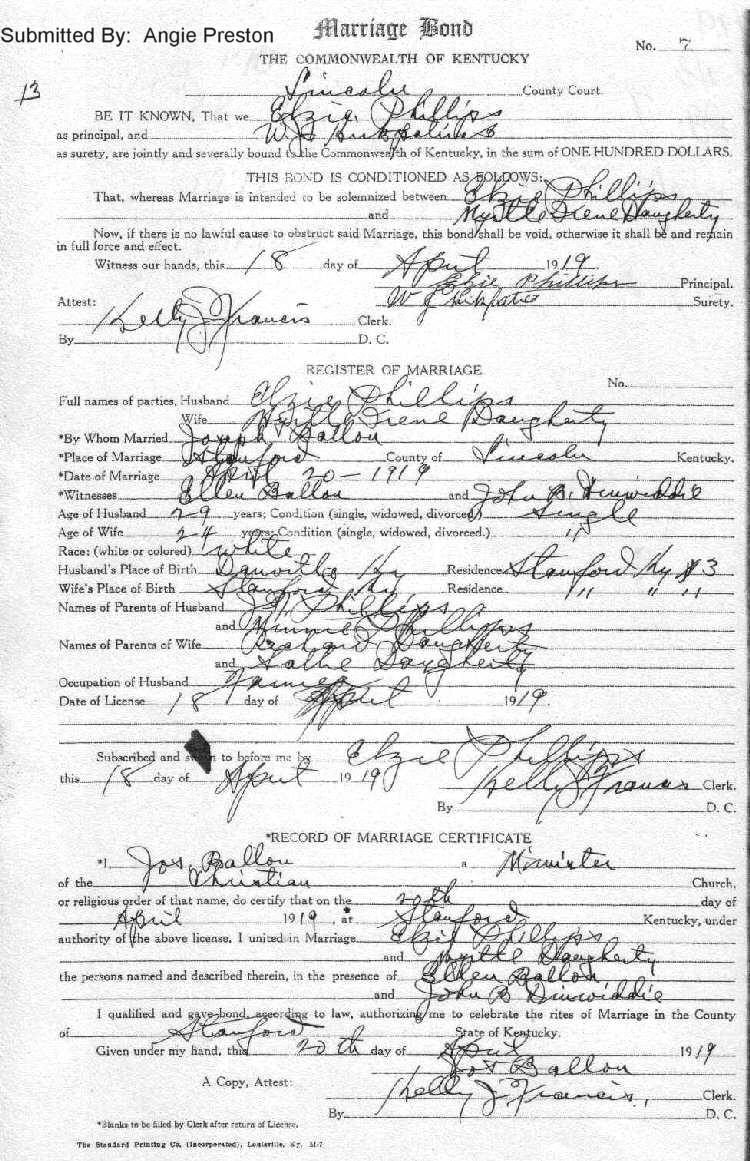 Submitted By: Angie Preston
Marriage Bond
No. 7
THE COMMONWEALTH OF KENTUCKY
13
Lincoln County Court.
BE IT KNOWN, That we Elzie Phillips
as principal, and W. J. Kirkpatrick
as surety, are jointly and severally bound to the Commonwealth of Kentucky, in the sum of ONE HUNDRED DOLLARS.
THIS BOND IS CONDITIONED AS FOLLOWS:
That, whereas Marriage is intended to be solemnized between Elzie Phillips
and Myrtle Irene Daugherty
Now, if there is no lawful cause to obstruct said Marriage, this bond shall be void, otherwise it shall be and remain
in full force and effect.
Witness our hands, this 18 day of April 1919
Elzie Phillips Principal.
Attest: W J Kirkpatric Surety.
Kelly J Francis Clerk.
By D. C.
REGISTER OF MARRIAGE
No.
Full names of parties, Husband Elzie Phillips
Wife Myrtle Irene Daugherty
*By Whom Married Joseph Ballou
*Place of Marriage Stanford County of Lincoln Kentucky.
*Date of Marriage April 20 - 1919
*Witnesses Ellen Ballou and John B. Dinwiddie
Age of Husband 29 years; Condition (single, widowed, divorced) Single
Age of Wife 24 years; Condition (single, widowed, divorced.) "
Race: (white or colored) white
Husband's Place of Birth Danville Ky Residence Stanford Ky #3
Wife's Place of Birth Stanford Ky Residence " " "
Names of Parents of Husband Phillips
and Minnie Phillips
Names of Parents of Wife Richard Daugherty
and Sallie Daugherty
Occupation of Husband Farmer
Date of License 18 day of April 1919
Subscribed and sworn to before me by Elzie Phillips
this 18 day of April 1919 Kelly J Francis Clerk.
By D. C.
*RECORD OF MARRIAGE CERTIFICATE
*I, Jos. Ballou a Minister
of the Christian Church,
or religious order of that name, do certify that on the 20th day of
April 1919, at Stanford Kentucky, under
authority of the above license, I united in Marriage Elzie Phillips
and Myrtle Daugherty
the persons named and described therein, in the presence of Ellen Ballou
and John B Dinwiddie
I qualified and gave bond, according to law, authorizing me to celebrate the rites of Marriage in the County
of Stanford State of Kentucky.
Given under my hand, this 20th day of April 1919
Jos Ballou
A Copy, Attest: Kelly J Francis, Clerk.
By D. C.
*Blanks to be filled by Clerk after return of License.
The Standard Printing Co. (Incorporated), Louisville, Ky.